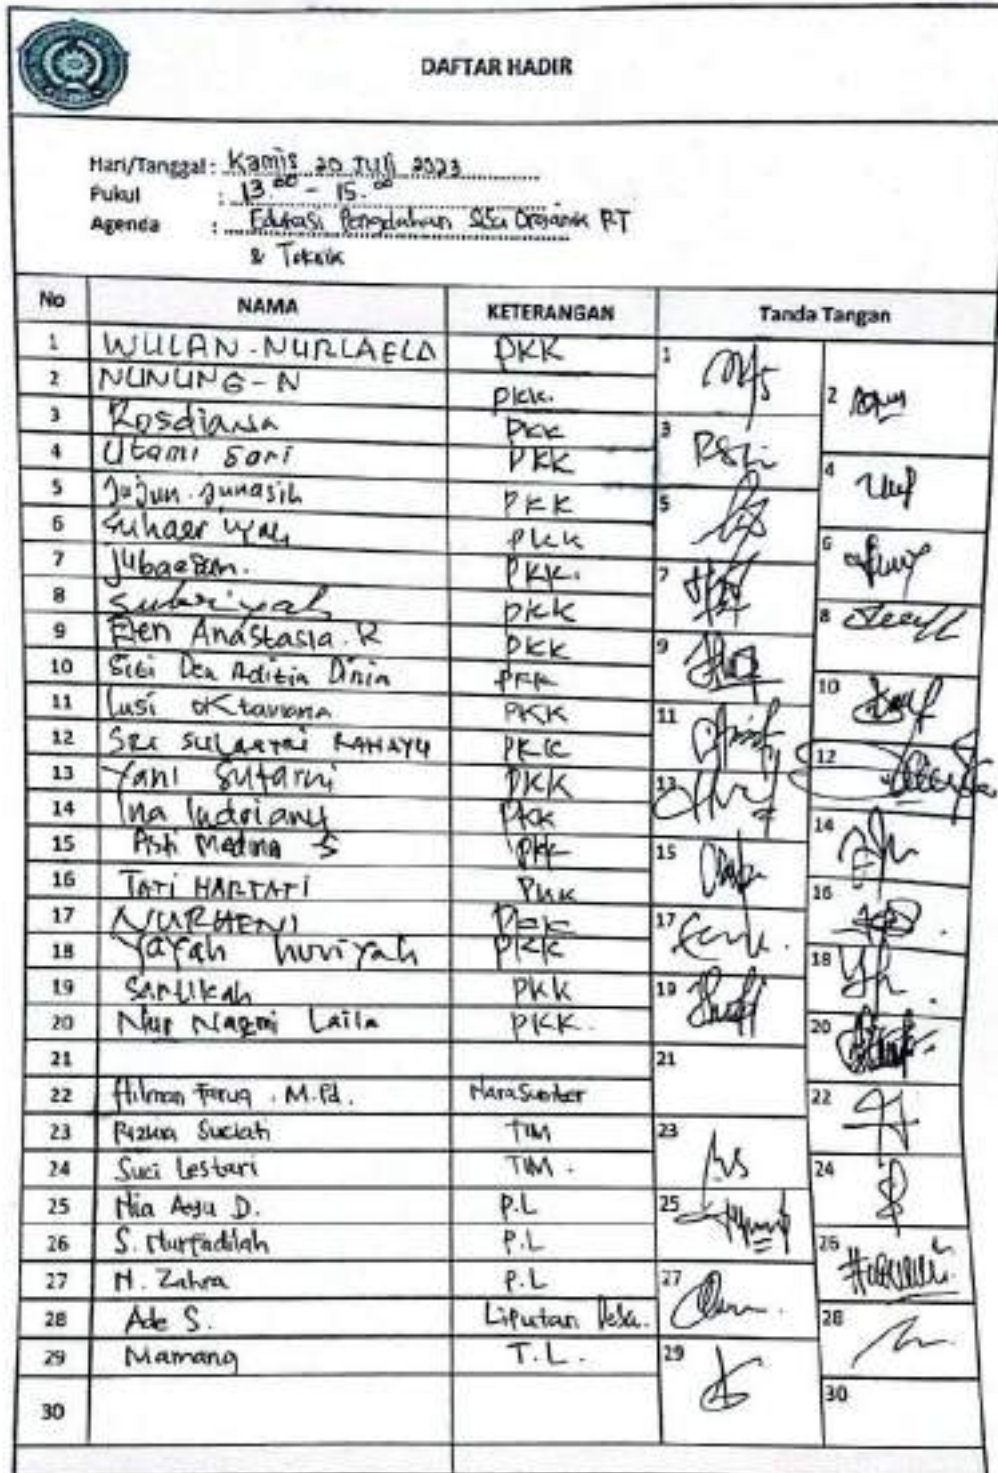 DAFTAR HADIR
Hari/Tanggal : Kamis 20 Juli 2023
Pukul : 13.00 - 15.00
Agenda : Edukasi Pengolahan Sisa Organik RT
& Teknik
No NAMA KETERANGAN Tanda Tangan
1 WULAN-NURLAELA PKK 1
2 NUNUNG-N PKK. 2
3 Rosdiana PKK 3
4 Utami Sari PKK 4
5 Jujun.Junasih PKK 5
6 PKK 6
7 PKK. 7
8 PKK 8
9 Elen Anastasia.R PKK 9
10 Siti Dea Aditia PKK 10
11 Lusi Oktaviana PKK 11
12 SRI RAHAYU PKK 12
13 Yani Sutarni PKK 13
14 Ina Indriany PKK 14
15 S PKK 15
16 TATI HARTATI PKK 16
17 NURHENI PKK 17
18 Yayah huriyah PKK 18
19 Sartikah PKK 19
20 Nur Nazmi Laila PKK. 20
21 21
22 Hilman Faruq . M.Pd. Narasumber 22
23 Rizkia Suciati TIM 23
24 Suci Lestari TIM . 24
25 Nia Ayu D. P.L 25
26 S. Nurfadilah P.L 26
27 N. Zahra P.L 27
28 Ade S. Liputan Desa. 28
29 Mamang T.L. 29
30 30